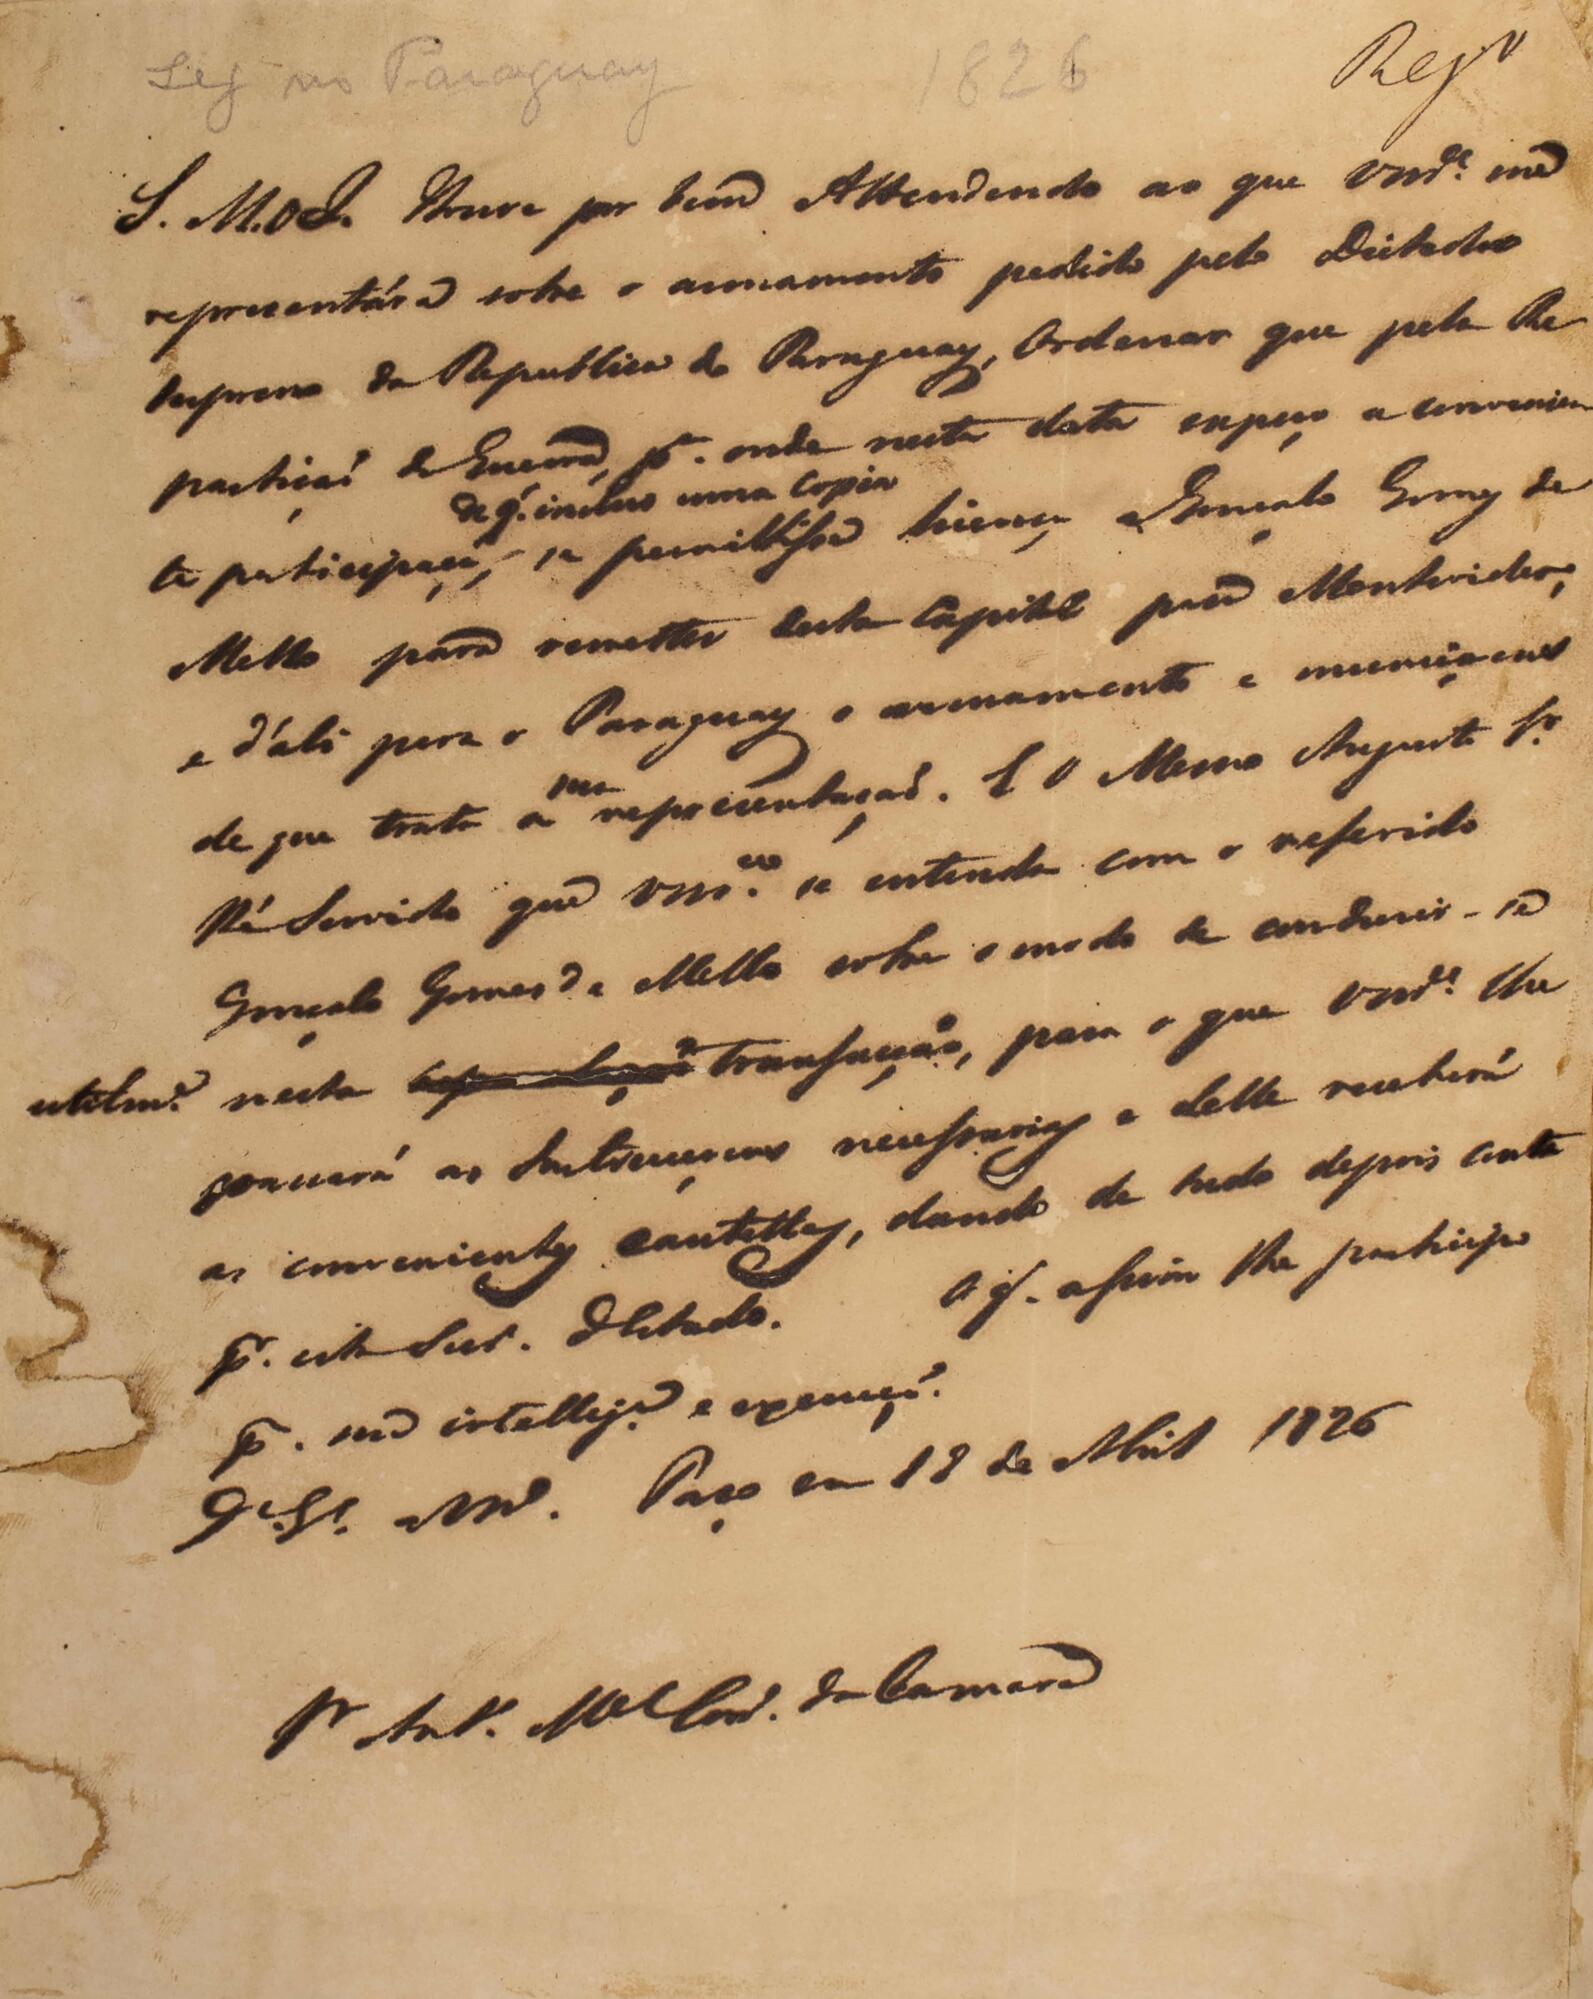 Leg no Paraguay 1826 Regº
S. M. O I. Houve por bem Attendendo ao que Vmce. me
representára sobre o armamento pedido pelo Dictador
Supremo da Republica do Paraguay, Ordenar que pela Re
partiçaõ da Guerra, pª. onde nesta data expeço a convenien
de q. incluo uma copia
te participaçaõ, se permittisse licença a Gonçalo Gomes de
Mello para remetter desta Capital para Montevideo,
e d'ali para o Paraguay o armamento e muniçoens
de que trata a sua representaçaõ. E O Mesmo Augusto Sr.
Hé Servido que Vmce. se entenda com o referido
Gonçalo Gomes de Mello sobre o modo de conduzir-se
utilme. nesta transacção, para o que Vmce. lhe
passará as Instrucçoens necessarias e delle receberá
as convenientes cautellas, dando de tudo depois conta
pr. esta Secr. d'Estado. O q. assim lhe participo
pª. sua intelligª. e execuçaõ.
De. Ge. a Vmce. Paço em 18 de Abril 1826
Sr Antº. Mel Corrª. da Camara